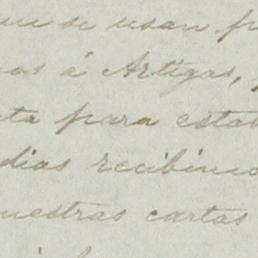 se usan
á Artigas,
para estab
dias recibimo
uestras cartas